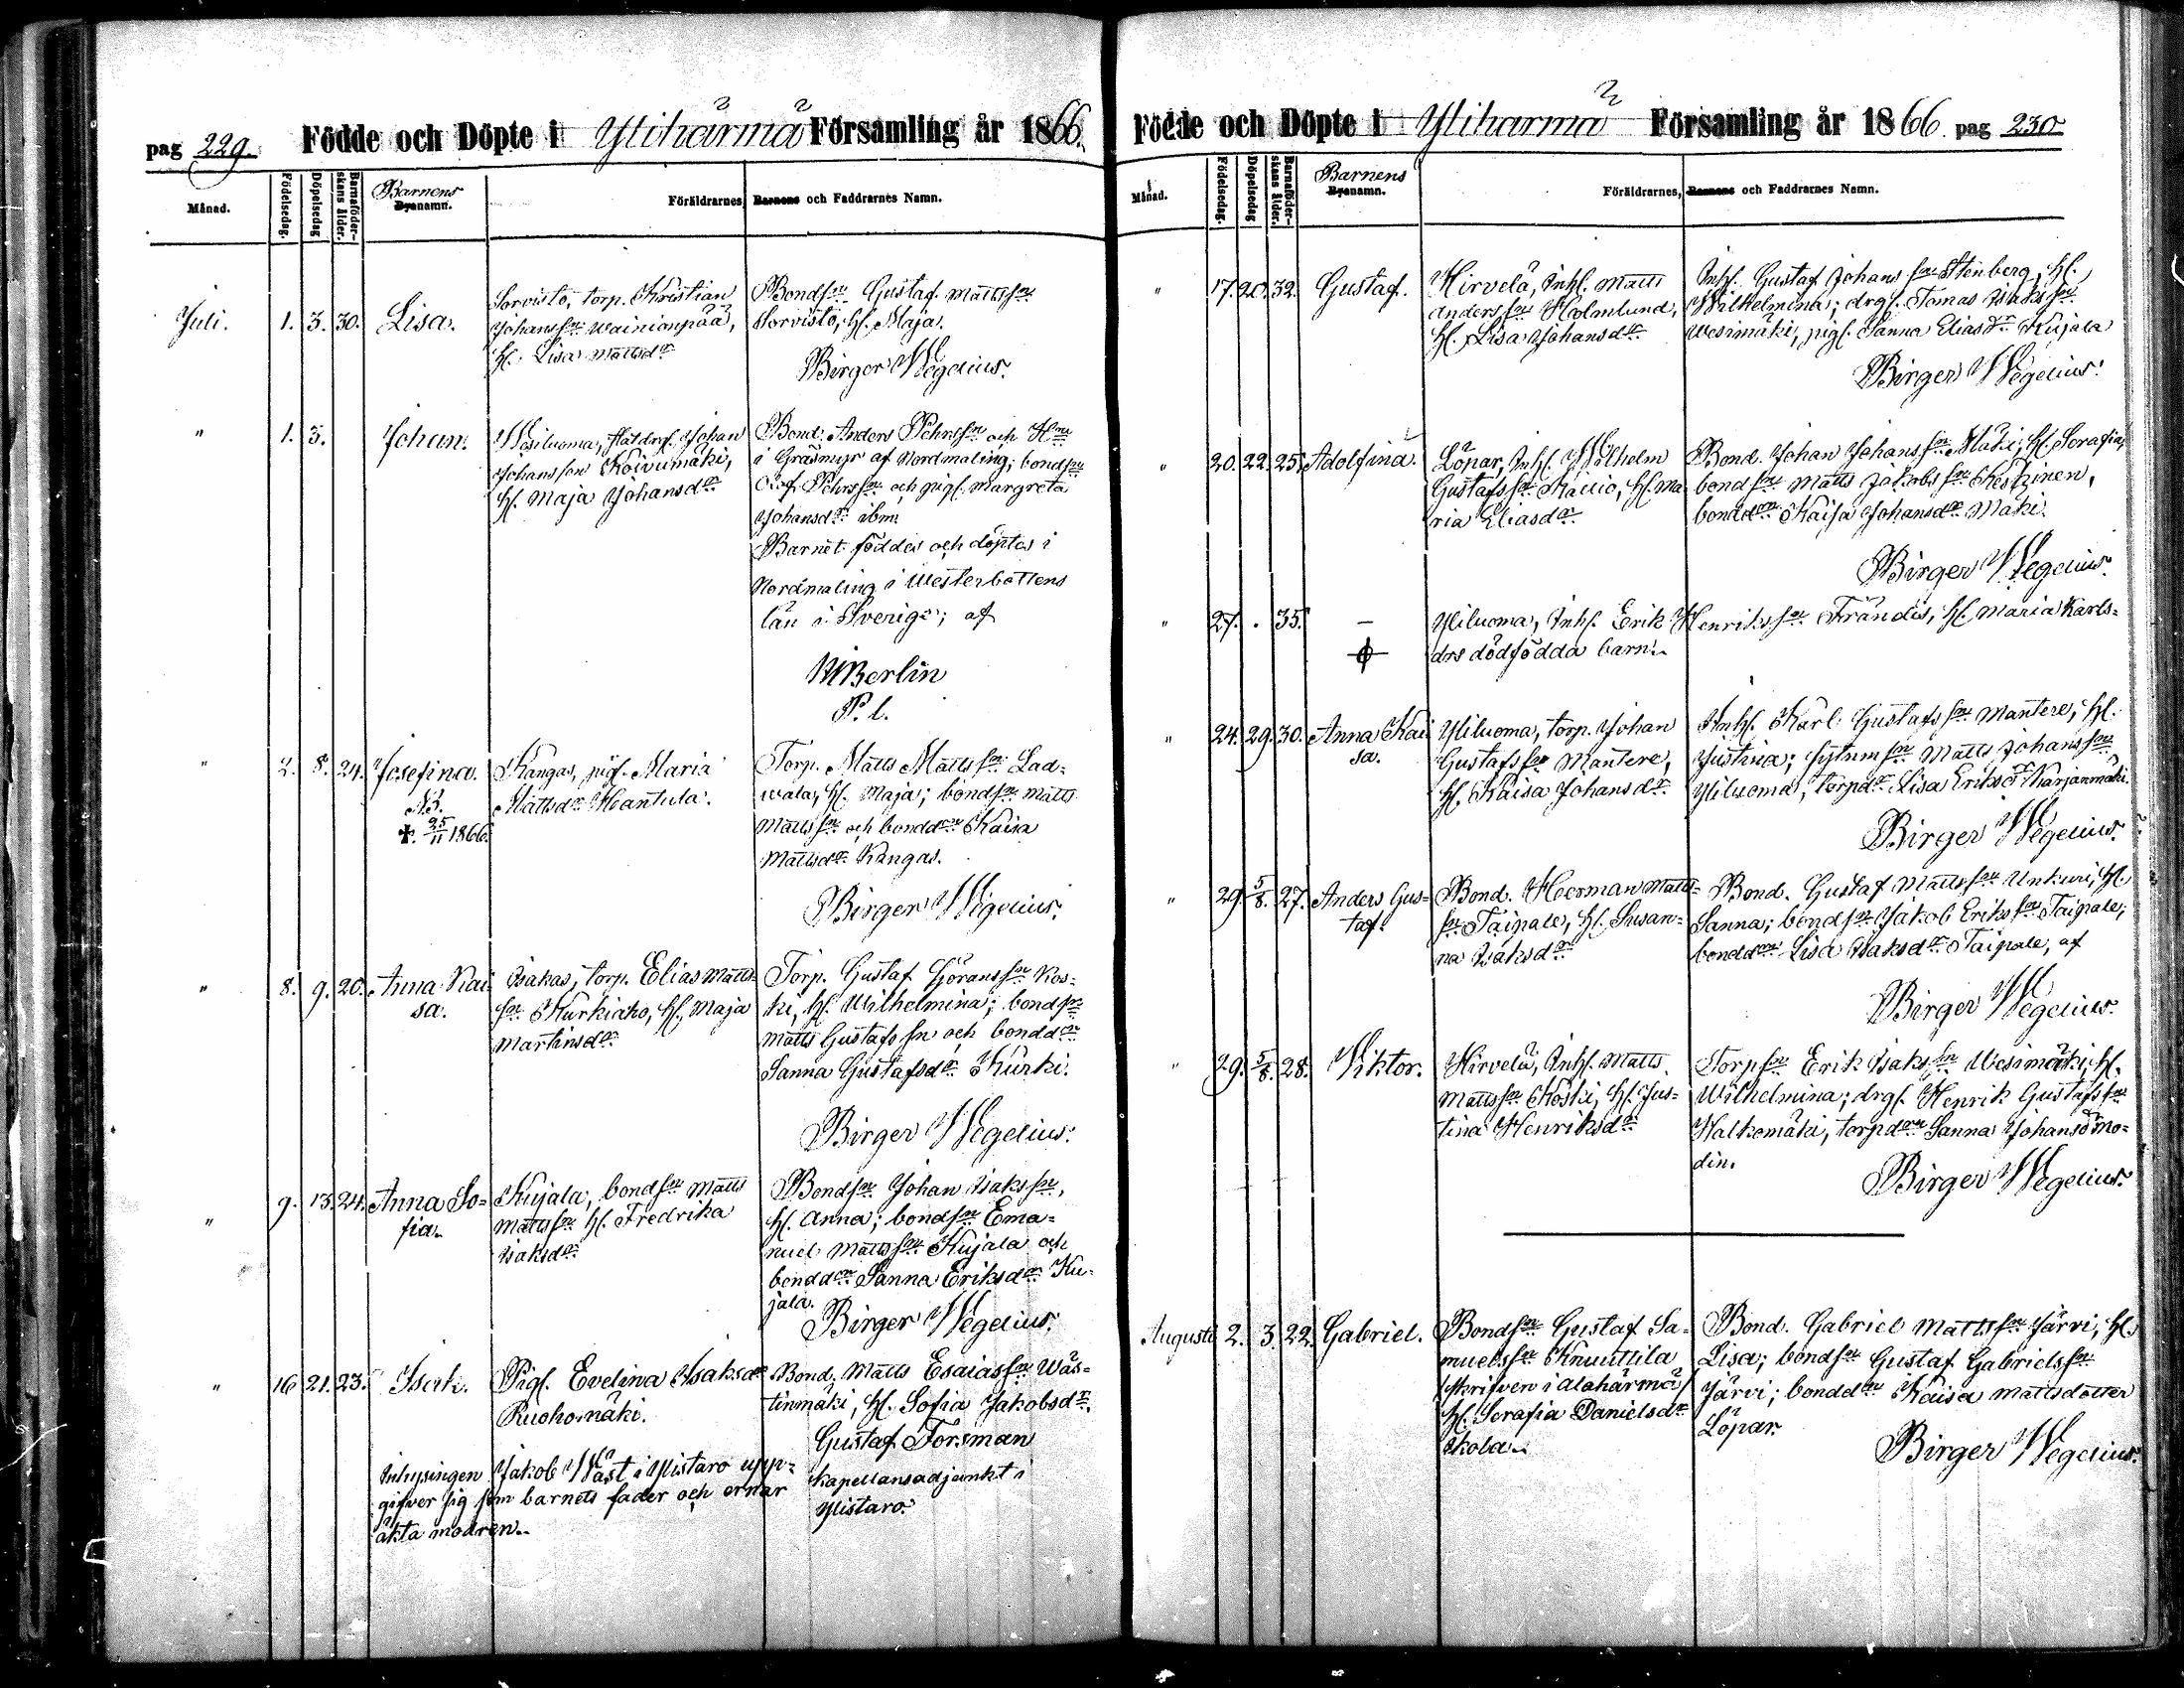 pag 229. Födde och Döpte i Ylihärmä Församling år 1866.
Månad.
Födelsedag.
Döpelsedag
Barnaföder-
skans ålder.
Barnens
Byanamn.
Föräldrarnes, Barnens och Faddrarnes Namn.
Juli. 1. 3. 30. Lisa.
Sorvisto, torp. Kristian
Johanssn Wainionpää,
H. Lisa Mattsdr
Bondsn Gustaf Mattssn
Sorvisto, H. Maja.
Birger Wegelius.
" 1. 3. Johan.
Johansson Koivumäki,
H. Maja Johansdr
Bond. Anders Pehrssn och Hru
i Gräsmyr af Nordmaling; bondsn
Olof Pehrssn och pig. Margreta
Johansdr ibm.
Barnet föddes och döptes i
Nordmaling i Westerbottens
län i Sverige; af
Berlin
P. l.
" 2. 8. 24. Josefina.
N3.
✝. 25/11 1866.
Kangas, pig. Maria
Mattsdr Hantula.
Torp. Matts Mattssn Lad-
wala, H. Maja; bondsn Matts
Mattssn och bonddn Kaisa
Mattsdr Kangas.
Birger Wegelius.
" 8. 9. 20. Anna Kai-
sa.
Isakas, torp. Elias Matts-
sn Kurkiaho, H. Maja
Martinsdr
Torp. Gustaf Göranssn Kos-
ki, H. Wilhelmina; bondsn
Matts Gustafssn och bonddn
Sanna Gustafsdr Kurki.
Birger Wegelius.
" 9. 13. 24. Anna So-
fia.
Kujala, bondsn Matts
Mattssn H. Fredrika
Isaksdr
Bondsn Johan Isakssn,
H. Anna; bondsn Ema-
nuel Mattssn Kujala och
bonddn Sanna Eriksdr Ku-
jala.
Birger Wegelius.
" 16 21. 23. Isak.
Pig. Evelina Isaksdr
Ruohomäki.
Bond. Matts Esaiassn Wäs-
tinmäki, H. Sofia Jakobsdr.
Gustaf Forsman
kapellansadjunkt i
Ylistaro.
Inhysingen Jakob Wäst i Ylistaro upp-
gifver sig som barnets fader och ernar
äkta modren.
Födde och Döpte i Ylihärmä Församling år 1866. pag 230
Månad.
Födelsedag.
Döpelsedag
Barnaföder-
skans ålder.
Barnens
Byanamn.
Föräldrarnes, Barnens och Faddrarnes Namn.
" 17. 20. 32. Gustaf.
Hirvelä, Inh. Matts
Anderssn Holmlund,
H. Lisa Johansdr
Inh. Gustaf Johanssn Stenberg, H.
Wilhelmina; drg. Tomas Isakssn
Wesimäki, pig. Sanna Eliasdr Kujala
Birger Wegelius.
" 20. 22. 25. Adolfina.
Löpar, Inh. Wilhelm
Gustafssn Kallio, H. Ma-
ria Eliasdr
Bond. Johan Johanssn Mäki, H. Serafia,
bondsn Matts Jakobssn Keskinen,
bonddn Kaisa Johansdr Mäki.
Birger Wegelius.
" 27. . 35. –
Yliluoma, Inh. Erik Henrikssn Frändis, H. Maria Karls-
drs dödfödda barn.
" 24. 29. 30. Anna Kai
sa.
Yliluoma, torp. Johan
Gustafssn Mantere,
H. Kaisa Johansdr
Inh. Karl Gustafssn Mantere, H.
Justina; Matts Johanssn
Yliluoma, torpdr Lisa Eriksdr Karjanmäki.
Birger Wegelius.
" 29. 5/8. 27. Anders Gus-
taf.
Bond. Herman Matts-
sn Taipale, H. Susan-
na Isaksdr
Bond. Gustaf Mattssn Unkuri, H.
Sanna; bondsn Jakob Erikssn Taipale;
bonddn Lisa Isaksdr Taipale, af
Birger Wegelius.
" 29. 5/8. 28. Wiktor.
Hirvelä, Inh. Matts
Mattssn Koski, H. Jus-
tina Henriksdr
Torpsn Erik Isakssn Wesimäki, H.
Wilhelmina; drg. Henrik Gustafssn
Halkomäki, torpdn Sanna Johansdr Mo-
din.
Birger Wegelius.
Augusti 2. 3. 22. Gabriel.
Bondsn Gustaf Sa-
muelssn Knuuttila
/skrifven i Alahärmä/
H. Serafia Danielsdr
Skola.
Bond. Gabriel Mattssn Järvi, H.
Lisa; bondsn Gustaf Gabrielssn
Järvi; bonddn Kaisa Mattsdotter
Löpar.
Birger Wegelius.